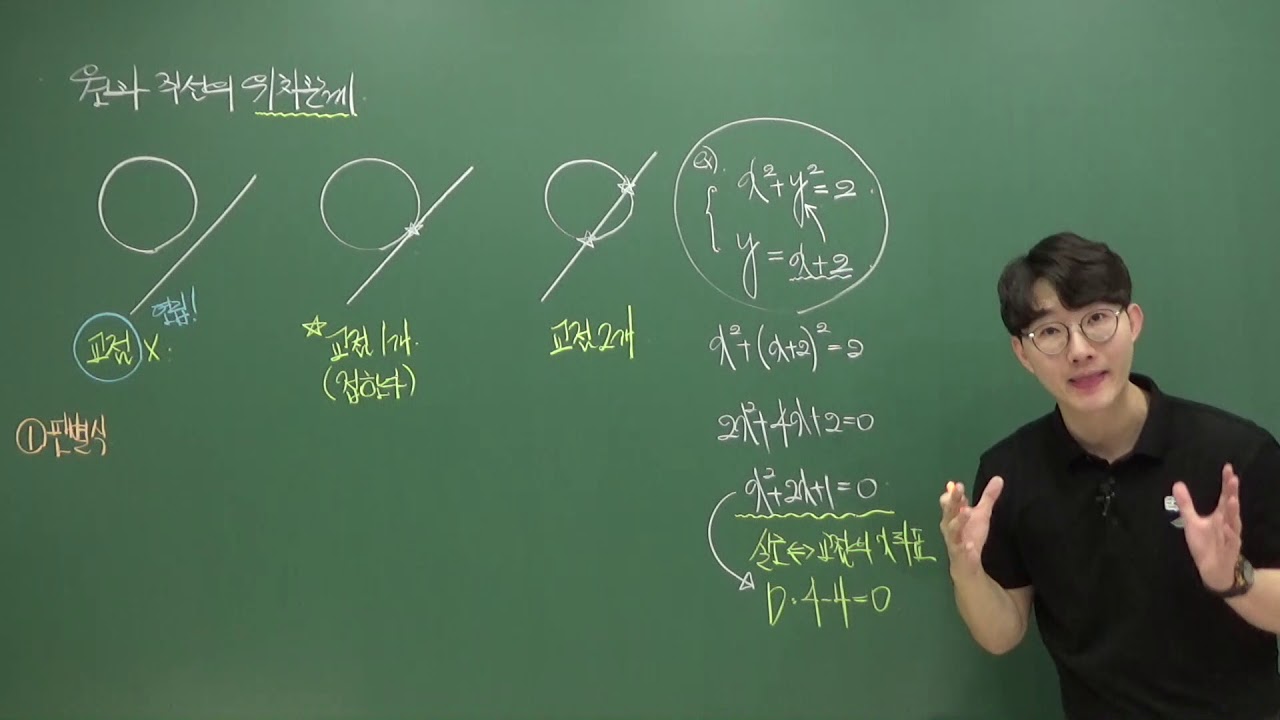 원과 직선의 위치관계.
교점 X.
연립!
☆교점 1개.
(접한다)
교점 2개
① 판별식
ex).
x²+y²=2.
y=x+2
x²+(x+2)²=2
2x²+4x+2=0
x²+2x+1=0
실근⇔교점의 x좌표
D: 4-4=0